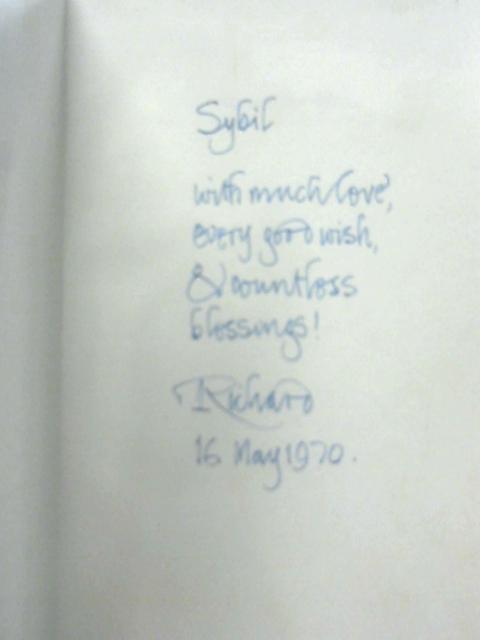 Sybil
with much love,
every good wish,
& countless
blessings!
Richard
16 May 1970.